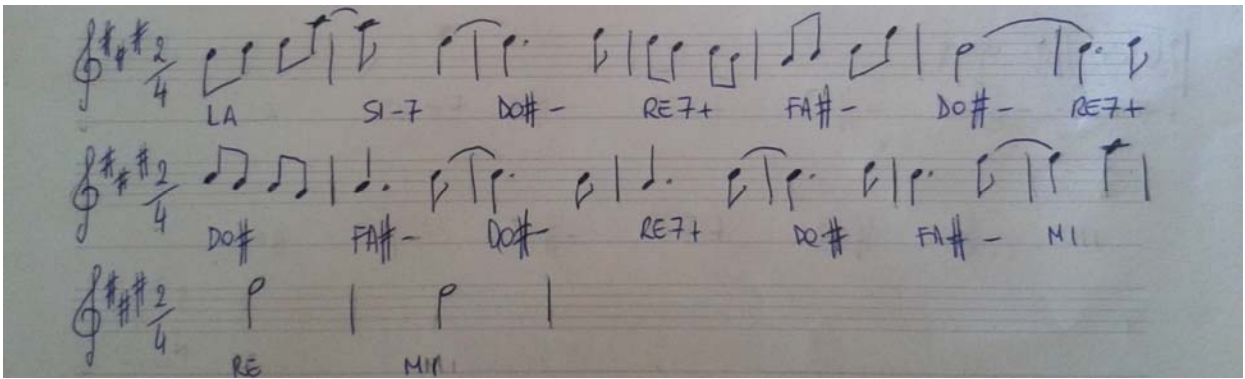 2/4
LA SI-7 DO#- RE7+ FA#- DO#- RE7+
2/4
DO# FA#- DO#- RE7+ DO# FA#- MI
2/4
RE